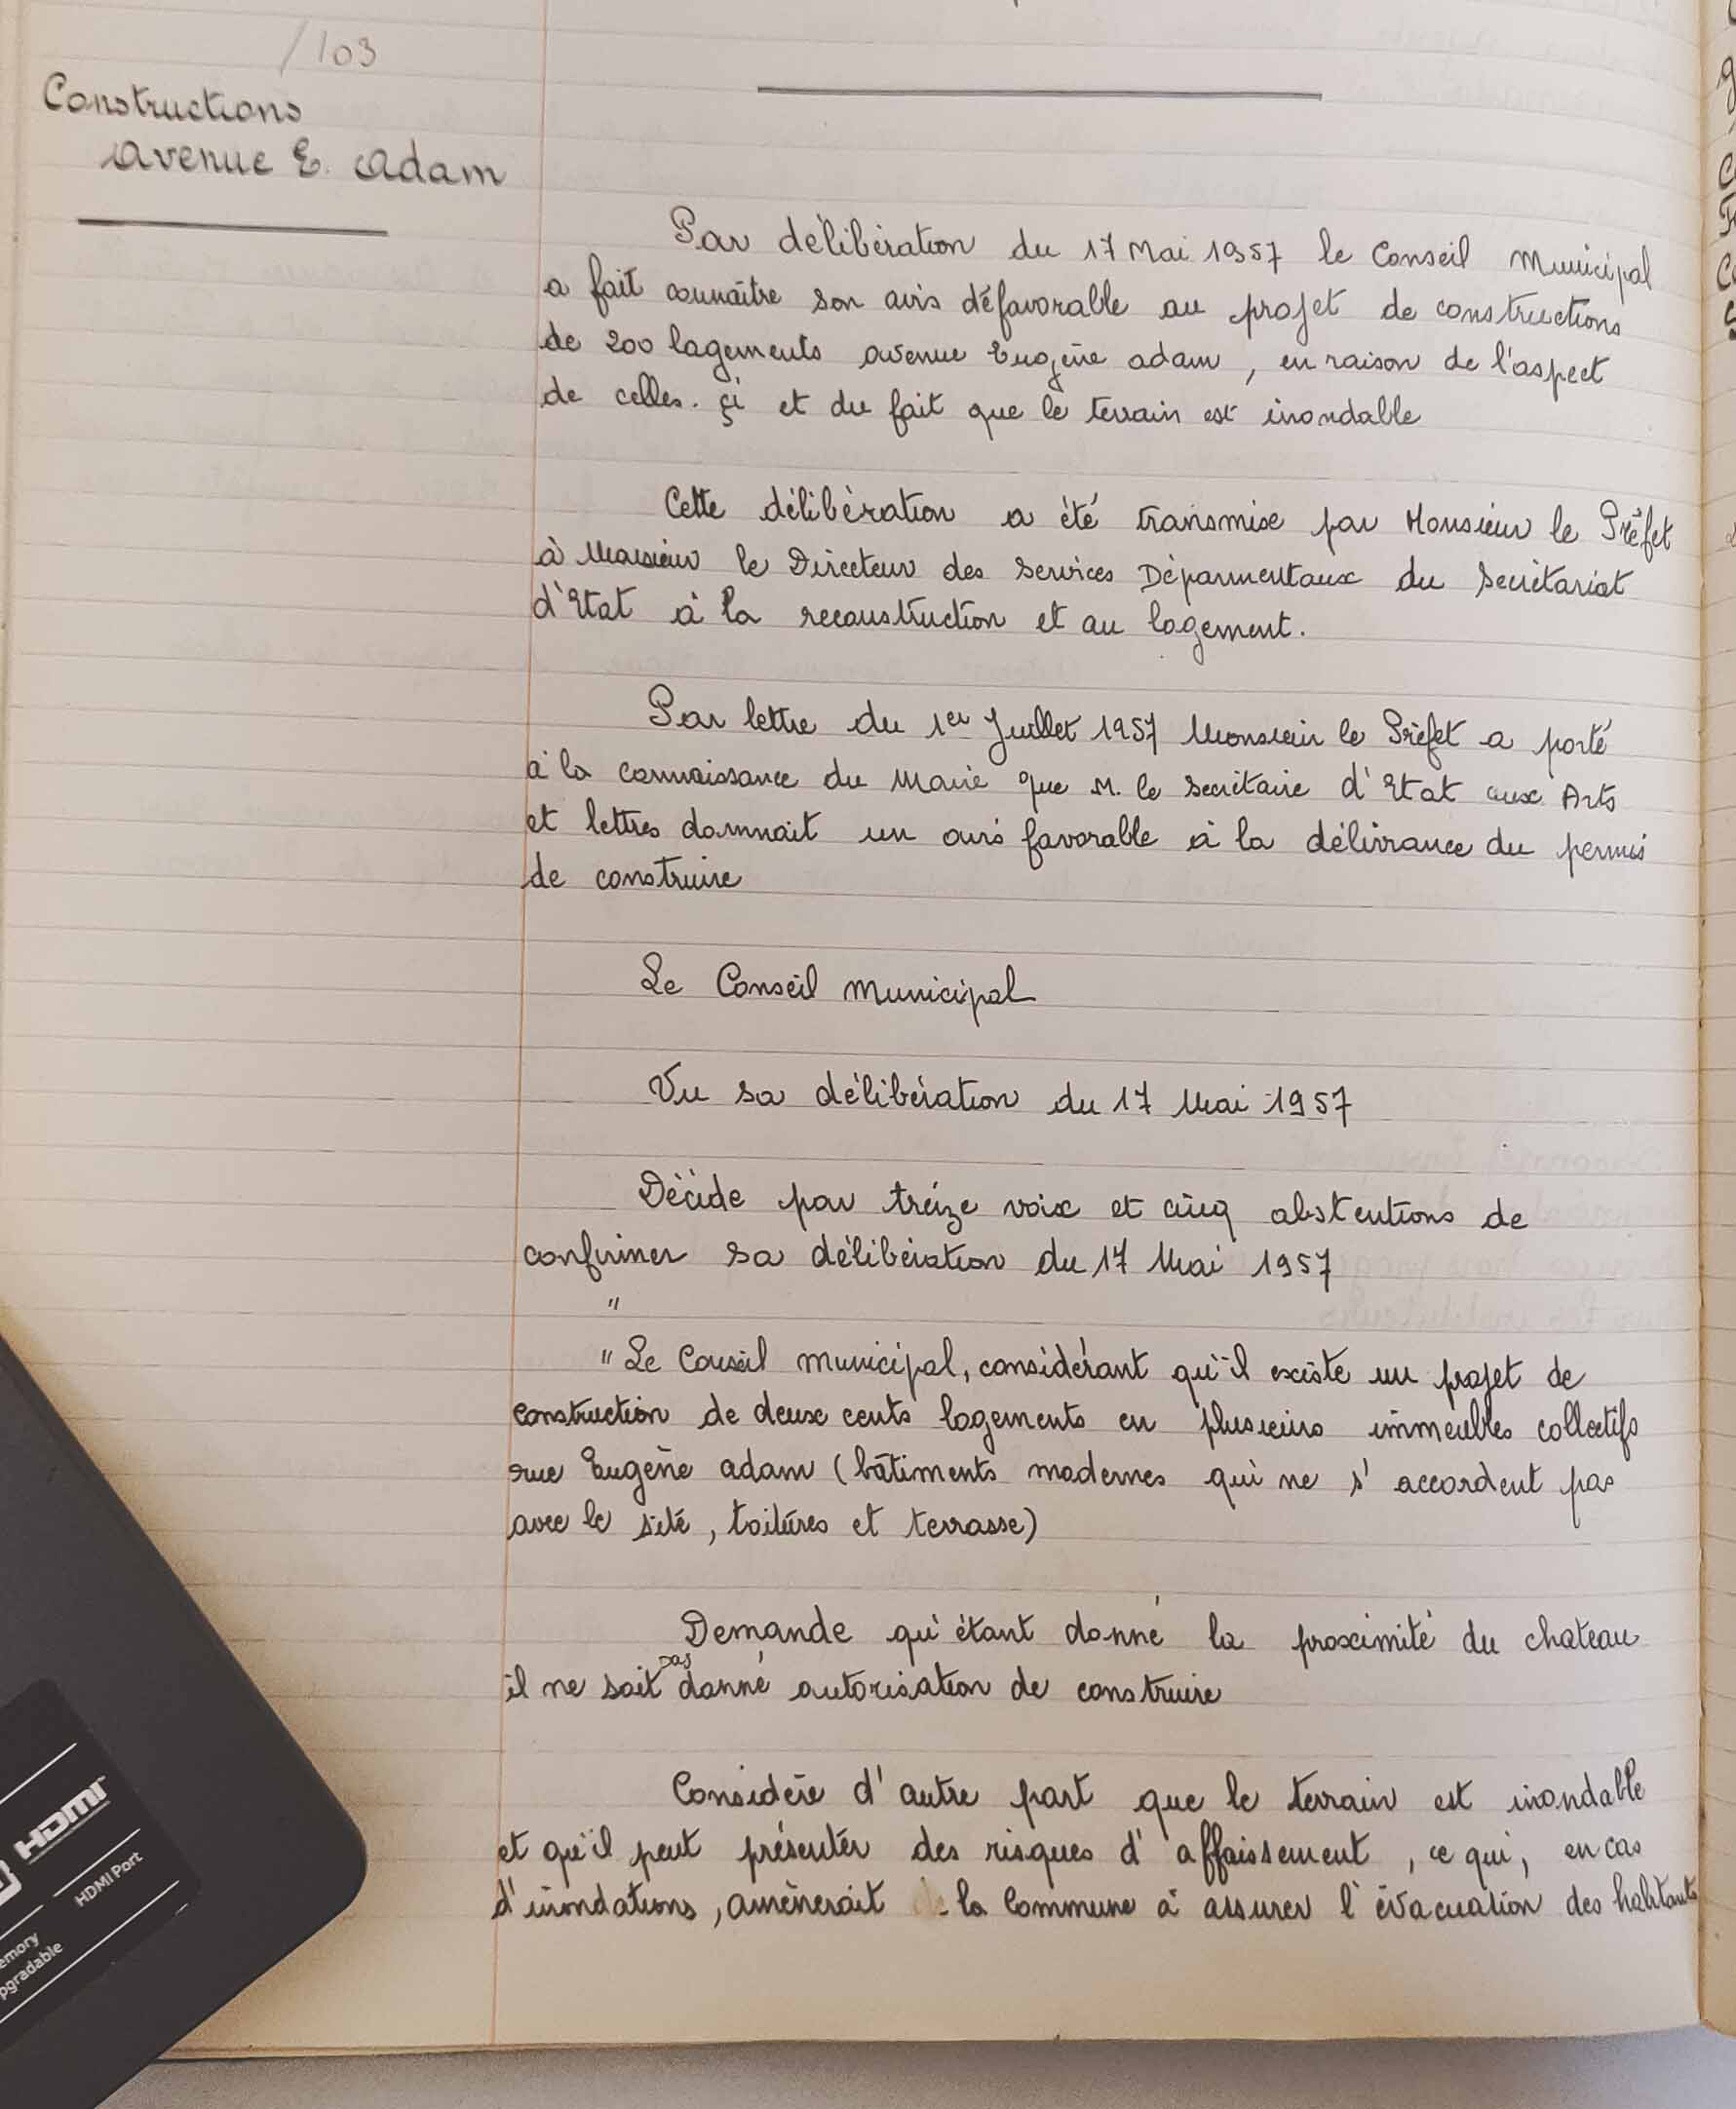 /103
Constructions
Avenue E. Adam
Par délibération du 17 Mai 1957 le Conseil Municipal
a fait connaître son avis défavorable au projet de constructions
de 200 logements avenue Eugène Adam, en raison de l'aspect
de celles-ci et du fait que le terrain est inondable
Cette délibération a été transmise par Monsieur le Préfet
à Monsieur le Directeur des Services Déparmentaux du Secrétariat
d'Etat à la reconstruction et au logement.
Par lettre du 1er Juillet 1957 Monsieur le Préfet a porté
à la connaissance du Maire que M. le Secrétaire d'Etat aux Arts
et lettres donnait un avis favorable à la délivrance du permis
de construire
Le Conseil Municipal
Vu sa délibération du 17 Mai 1957
Décide par treize voix et cinq abstentions de
confirmer sa délibération du 17 Mai 1957
"
" Le Conseil Municipal, considérant qu'il existe un projet de
construction de deux cents logements en plusieurs immeubles collectifs
rue Eugène Adam (bâtiments modernes qui ne s'accordent pas
avec le site, toitures et terrasse)
Demande qu'étant donné la proximité du chateau
il ne soit pas donné autorisation de construire
Considère d'autre part que le terrain est inondable
et qu'il peut présenter des risques d'affaissement, ce qui, en cas
d'inondations, amènerait la Commune à assurer l'évacuation des habitants
HDMI
HDMI Port
emory
pgradable